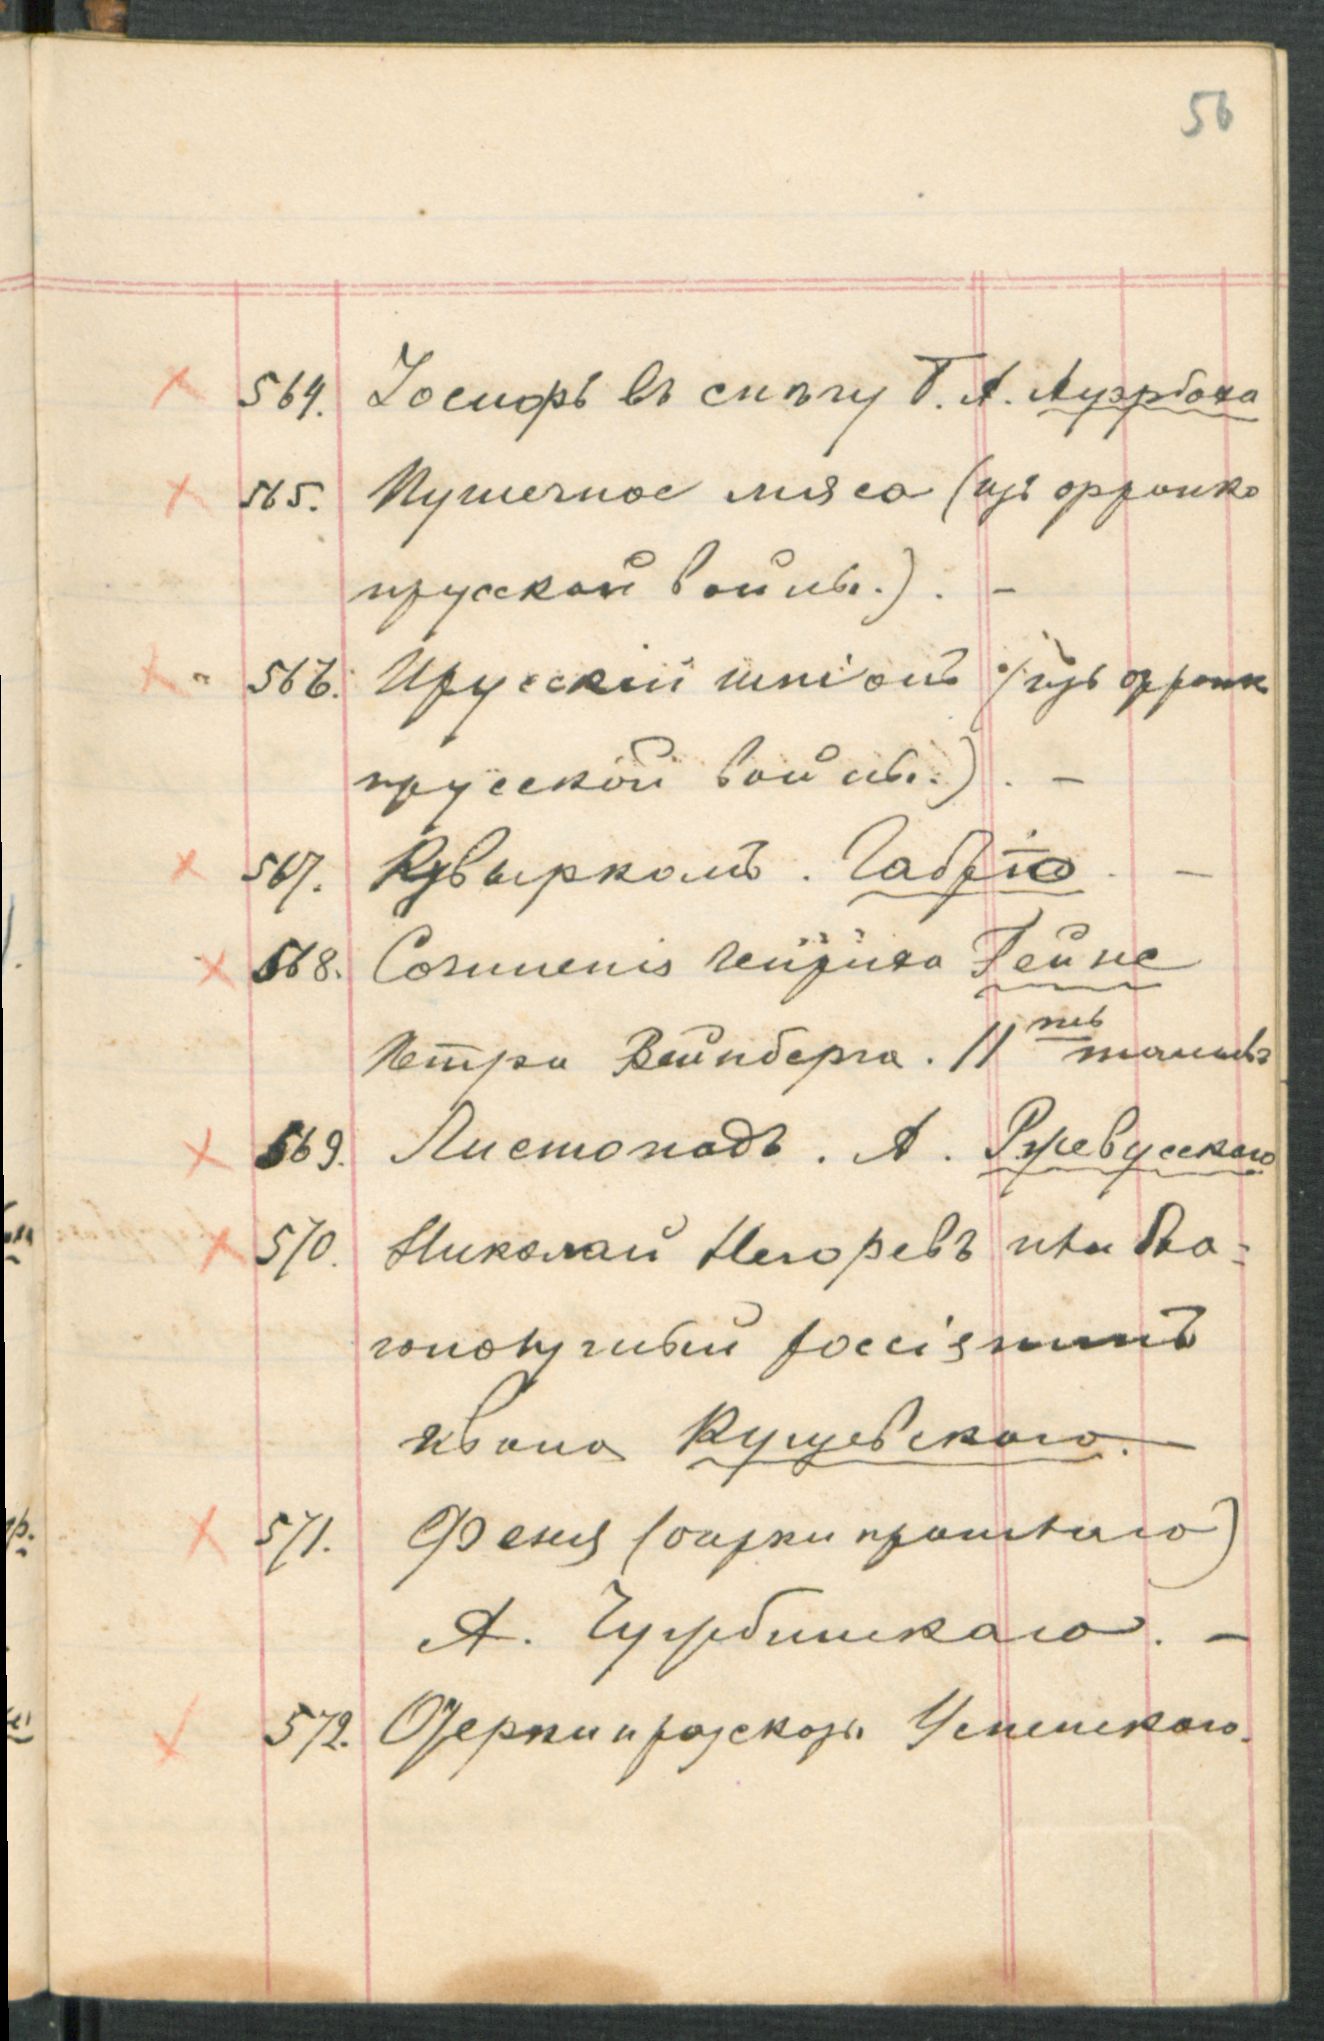 56
564. Іосифъ въ снѣгу Б. А. Ауэрбаха
565. Пушечное мясо (изъ франко
прусской войны.). –
566. Прусскій шпіонъ (изъ франк
прусской войны.). –
567. Кувыркомъ. Габріо. –
568. Сочиненія Генриха Гейне
Петра Вейнберга. 11 томовъ
569. Листопадъ. А. Ржевусскаго
570. Николай Негоревъ или Бла=
гополучный россіянинъ
Ивана Кущевскаго. –
571. Феня (очерки прошлаго)
А. Чужбинскаго. –
572. Очерки и разсказы Успенскаго.